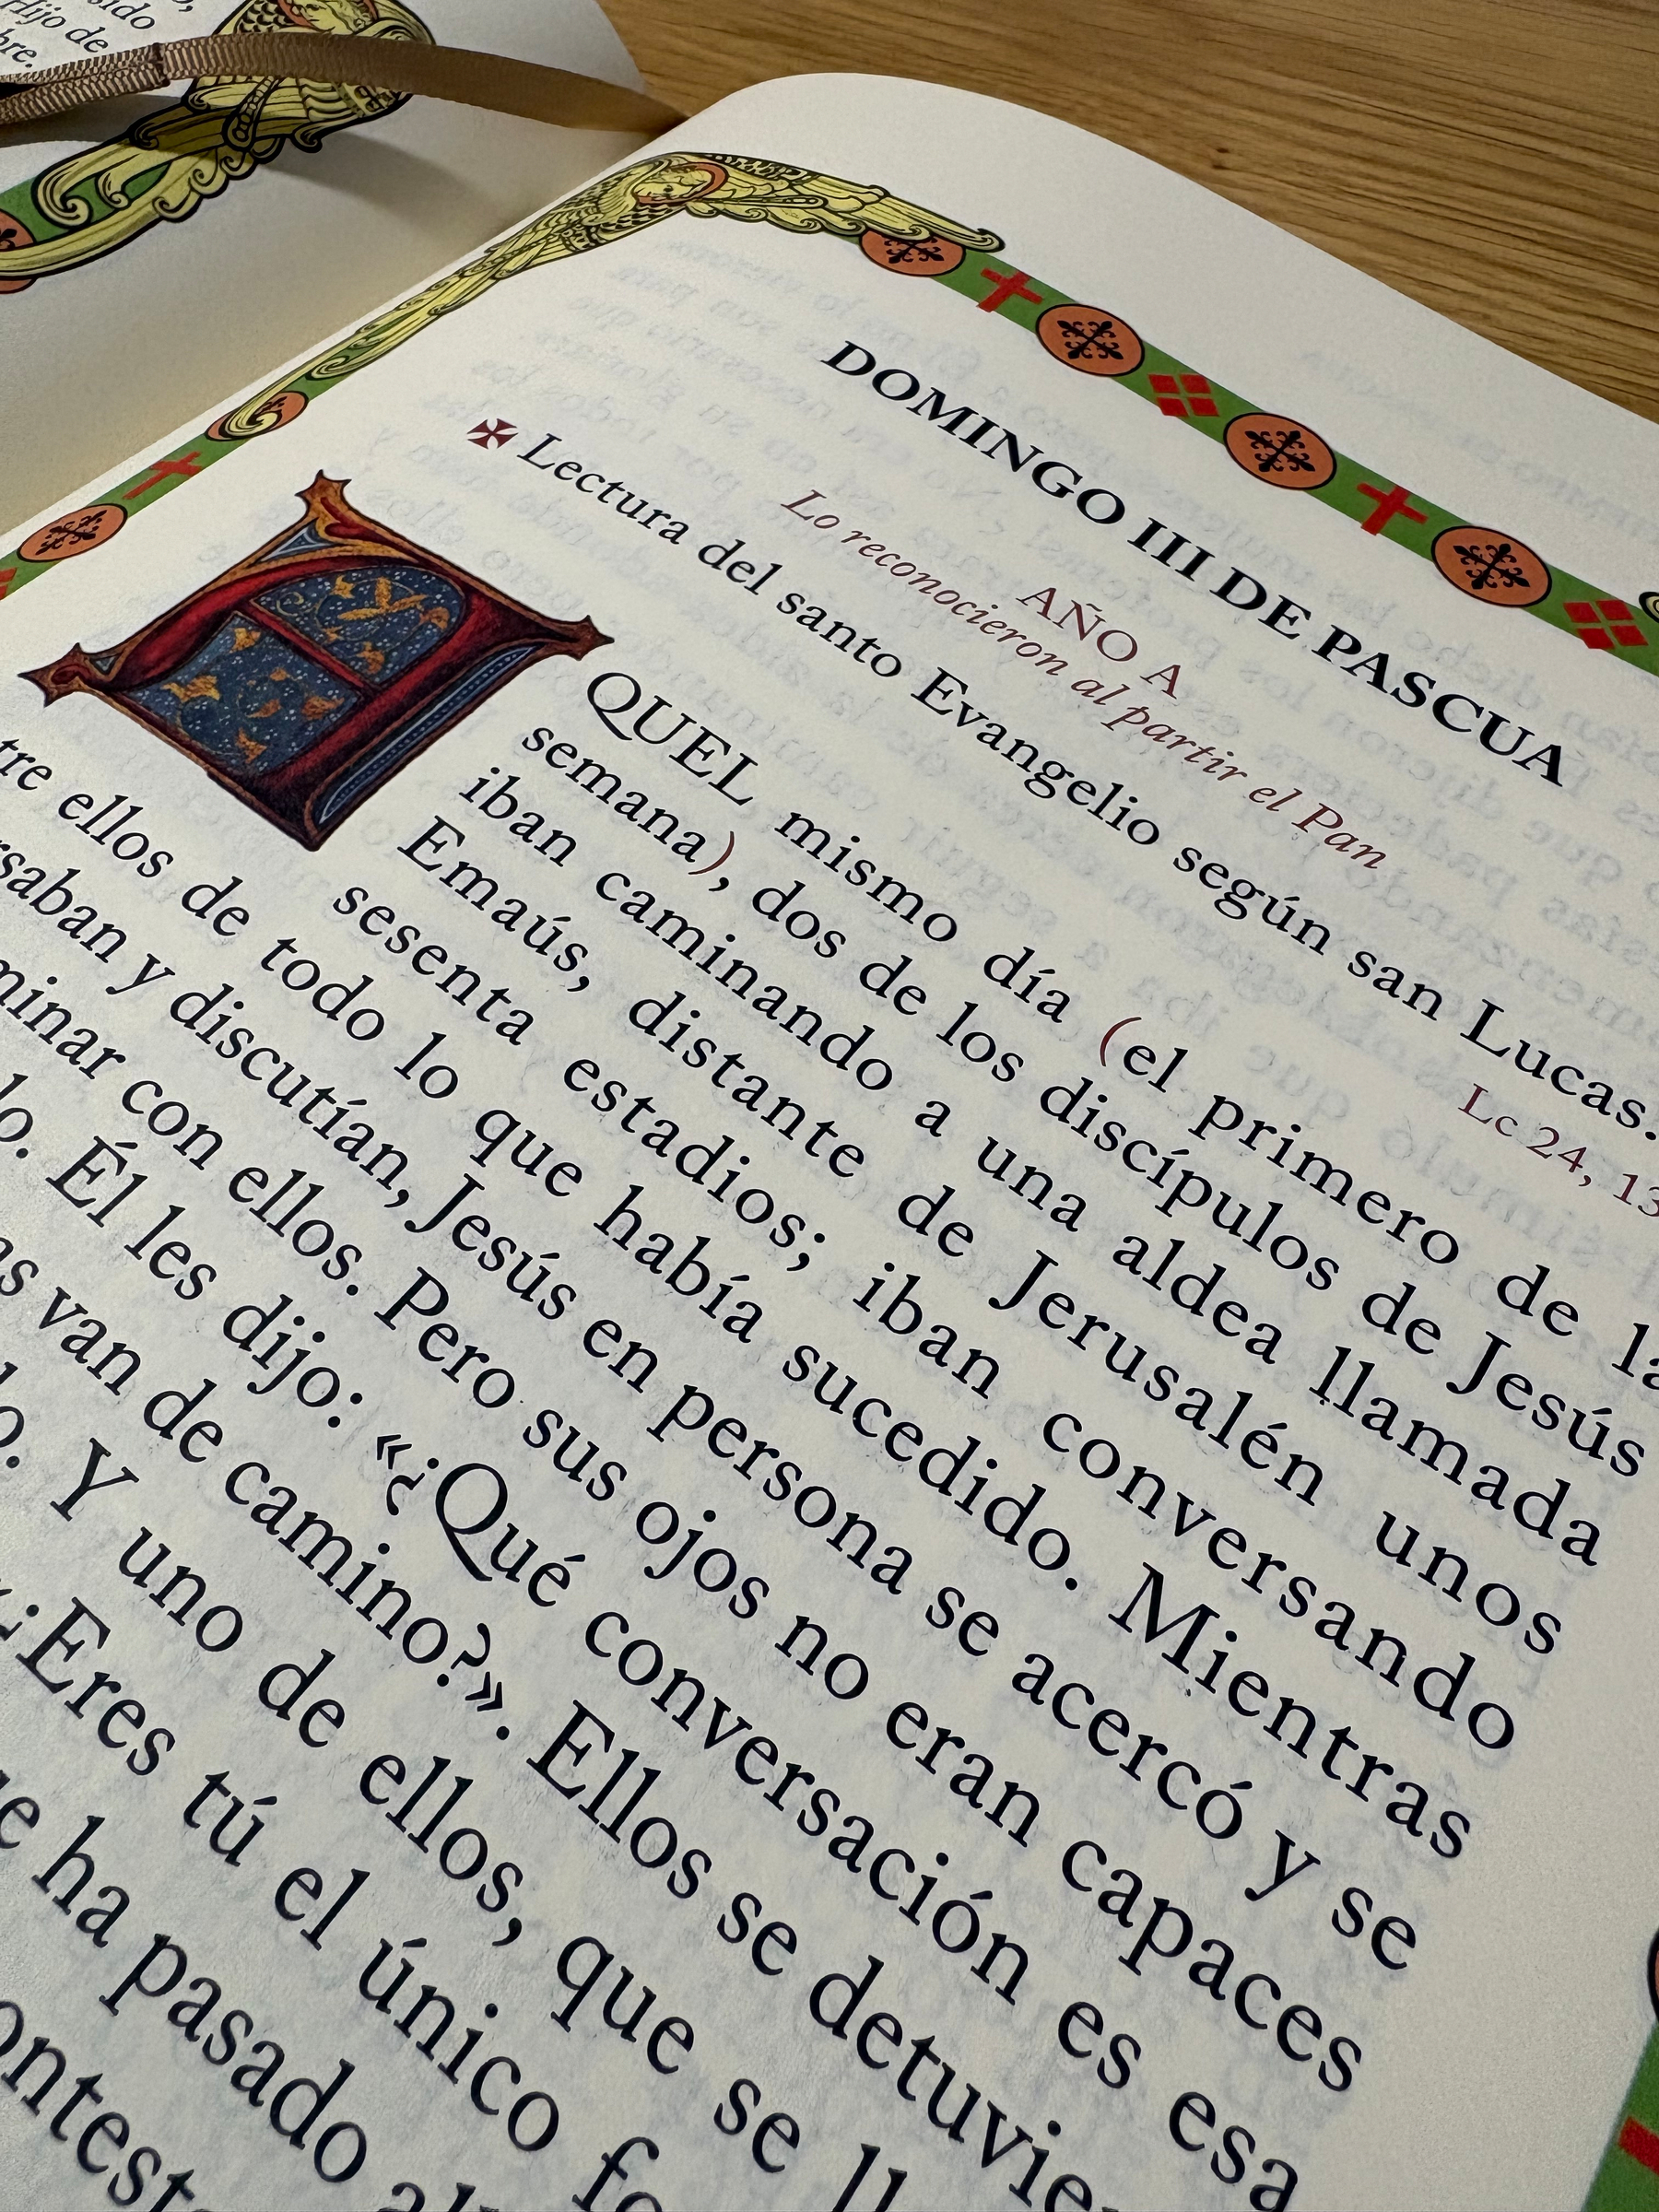 Hijo de
DOMINGO III DE PASCUA
AÑO A
Lo reconocieron al partir el Pan
✠ Lectura del santo Evangelio según san Lucas.
Lc 24, 13
AQUEL mismo día (el primero de la
semana), dos de los discípulos de Jesús
iban caminando a una aldea llamada
Emaús, distante de Jerusalén unos
sesenta estadios; iban conversando
tre ellos de todo lo que había sucedido. Mientras
rsaban y discutían, Jesús en persona se acercó y se
minar con ellos. Pero sus ojos no eran capaces
lo. Él les dijo: «¿Qué conversación es esa
as van de camino?». Ellos se detuvie
o. Y uno de ellos, que se ll
«¿Eres tú el único fo
e ha pasado al
ontest